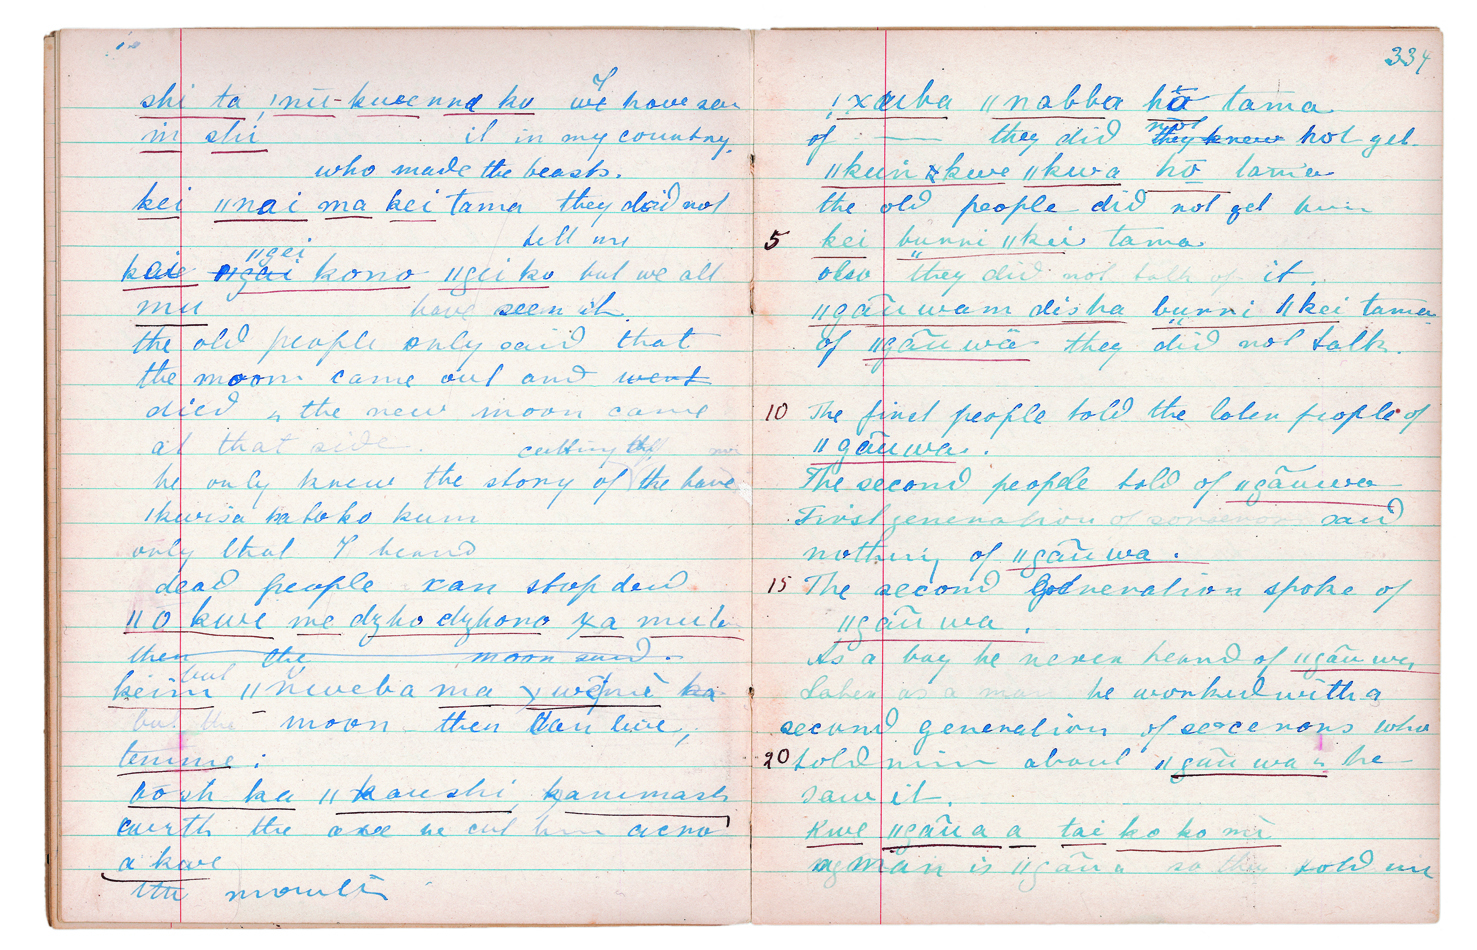 shi ta !nu-kwe nna ku We have seen
in shi it in my country.
who made the beasts.
kei ǁnai ma kei tama they did not
tell me
ǁgei
kaie ǁgai kono ǁgei ko but we all
mu have seen it.
the old people only said that
the moon came out and went
died & the new moon came
at that side. cutting the
he only knew the story of the hare
!kwisa ka toko kum
only that I heard
dead people can stop dead
ǁo kwe me dzho dzhono xa mu
then the moon said.
but
keim ǁnweba ma ka
but the moon then live,
temme;
oosh ka ǁkaushi, kammash
with the axe we cut him
a kwe
the mouth
334
!xaiba ǁnabba hō tama
of — they did not they knew not get
ǁkuin kwe ǁkwa hō tama
the old people did not get him
5 kei bunni ǁkei tama
also they did not talk of it.
ǁgāuwam disha bunni ǁkei tama
of ǁgāuwa they did not talk.
10 The first people told the later people of
ǁgāuwa.
The second people told of ǁgāuwa
First generation of sorcerors said
nothing of ǁgāuwa.
15 The second generation spoke of
ǁgāuwa.
As a boy he never heard of ǁgāuwa,
Later as a man he worked with a
second generation of sorcerors who
20 told him about ǁgāuwa & he
saw it.
kwe ǁgāua a tai ko ko mi
man is ǁgāua so they told me